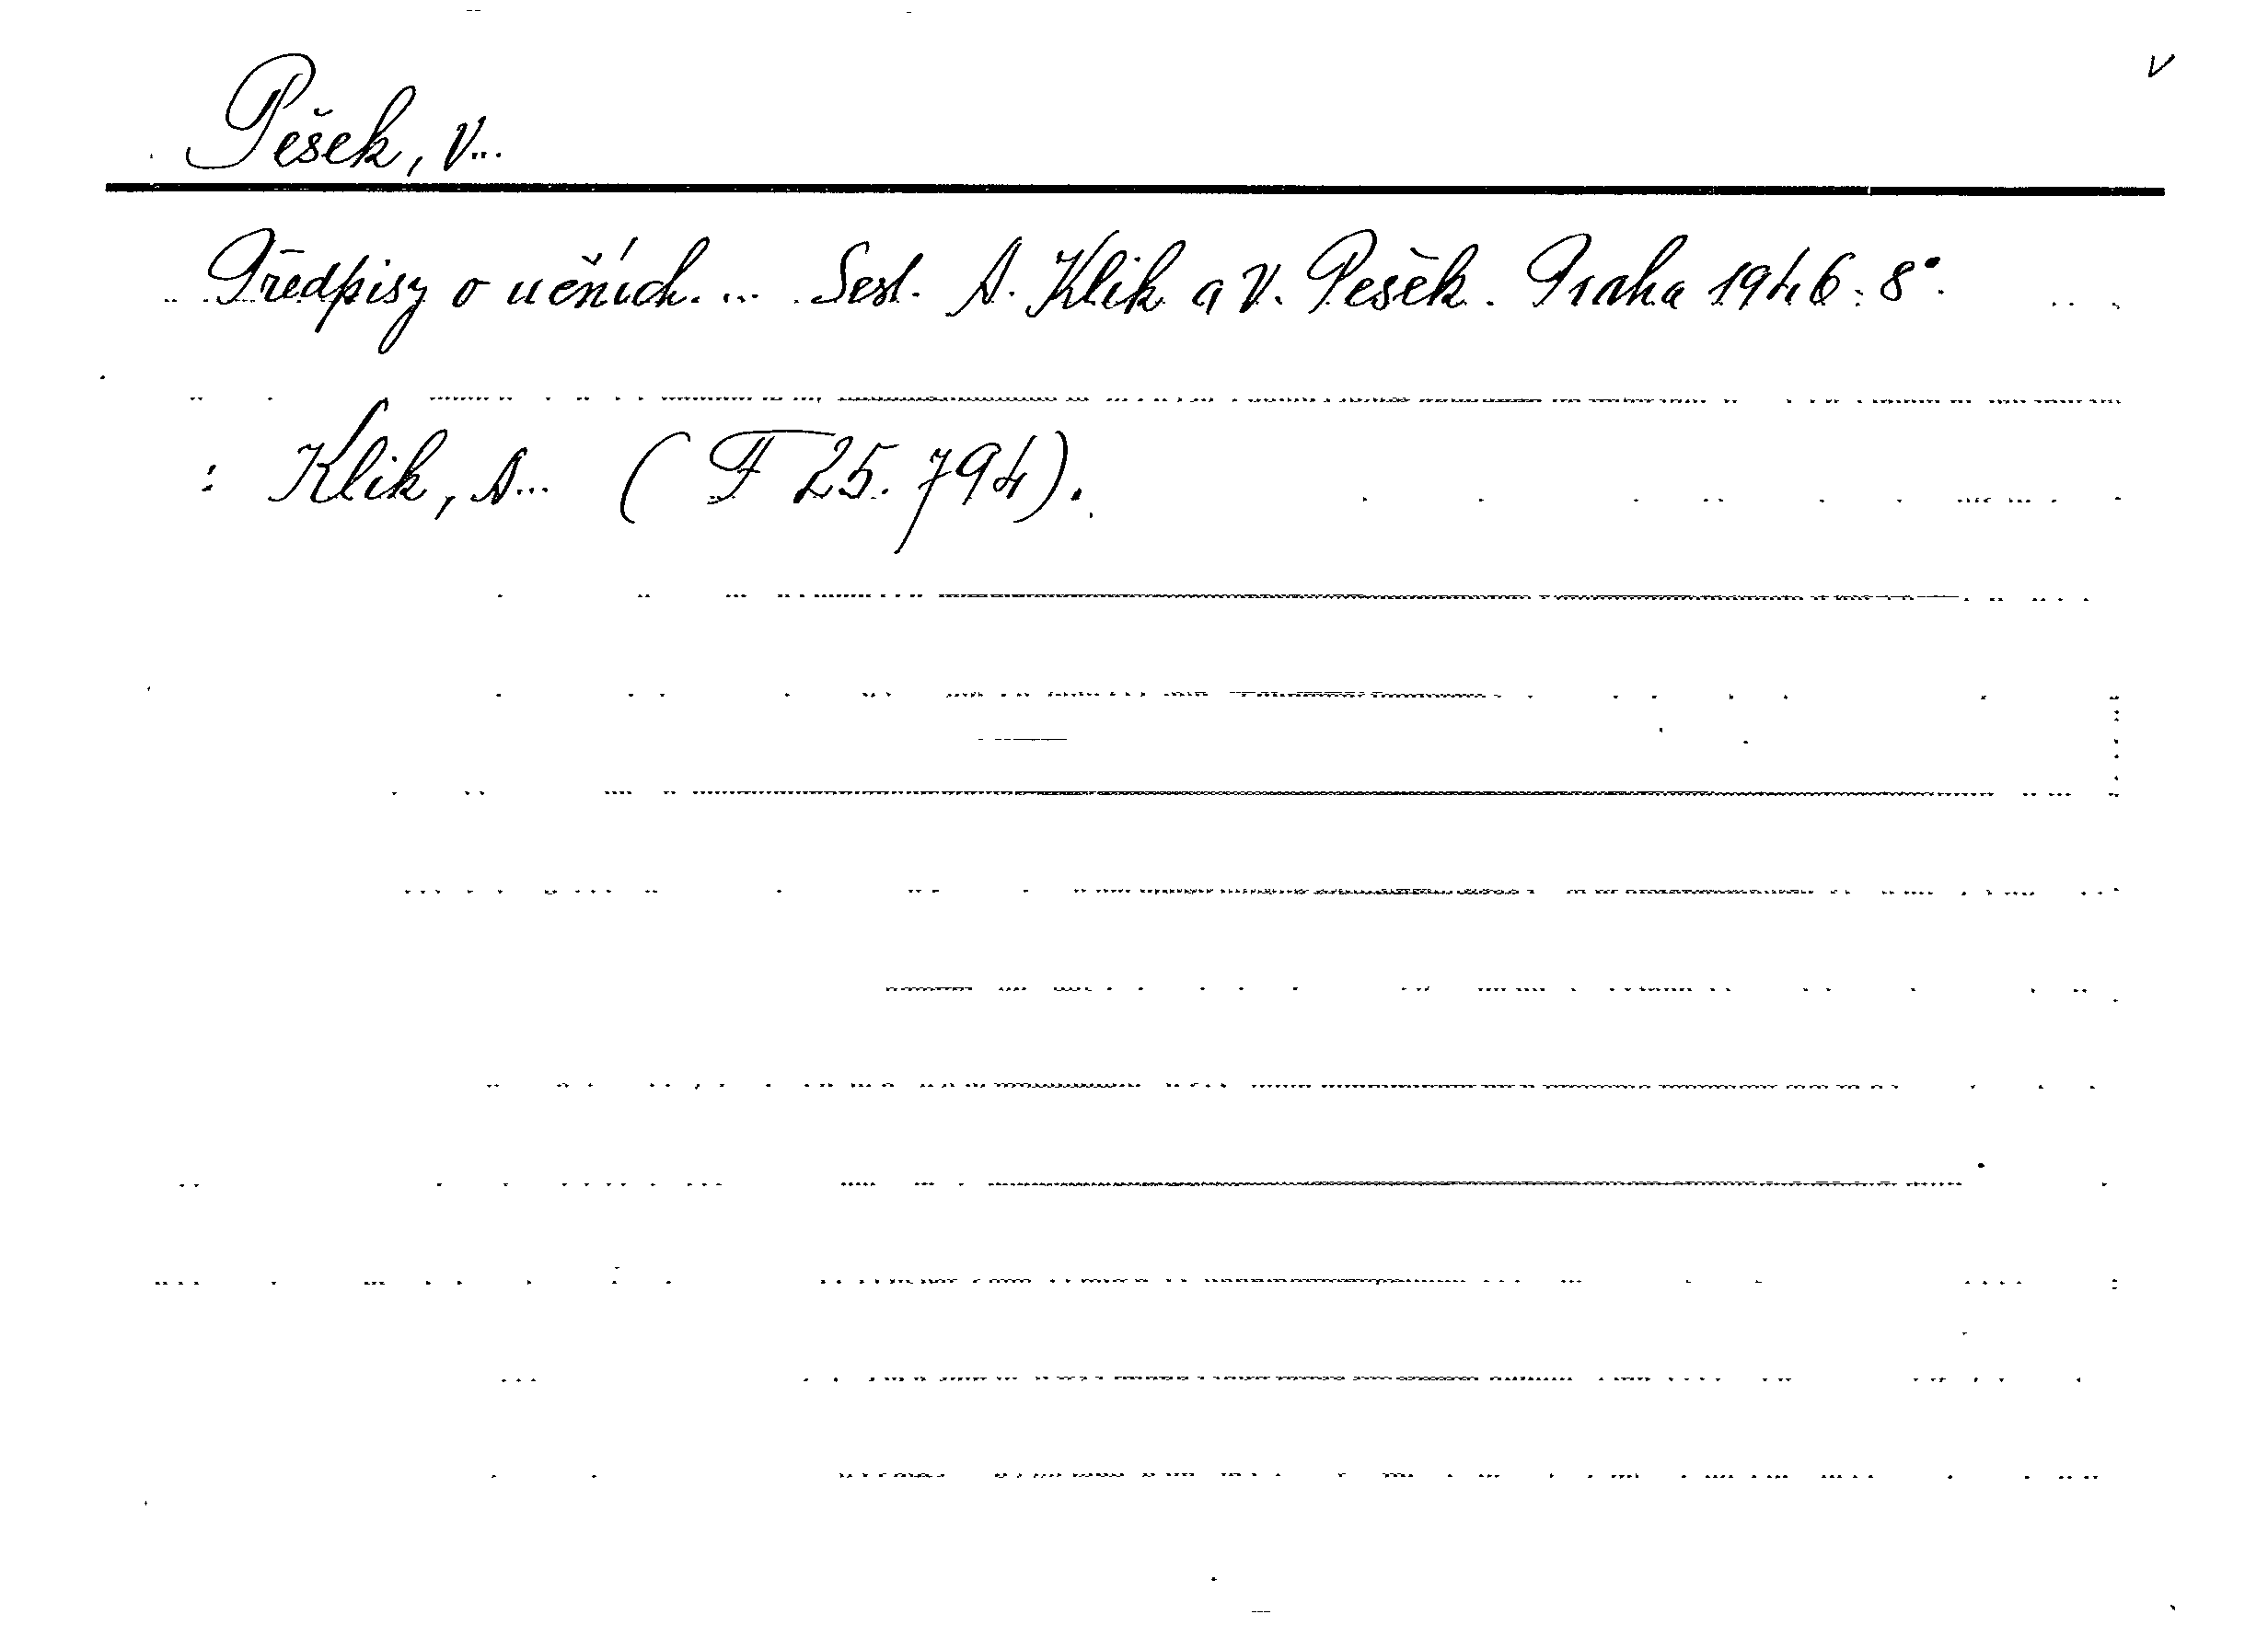 v
Pešek, V...
Předpisy o učních. ... Sest. A. Klik a V. Pešek. Praha 1946. 8°.
: Klik, A... (F 25.794).